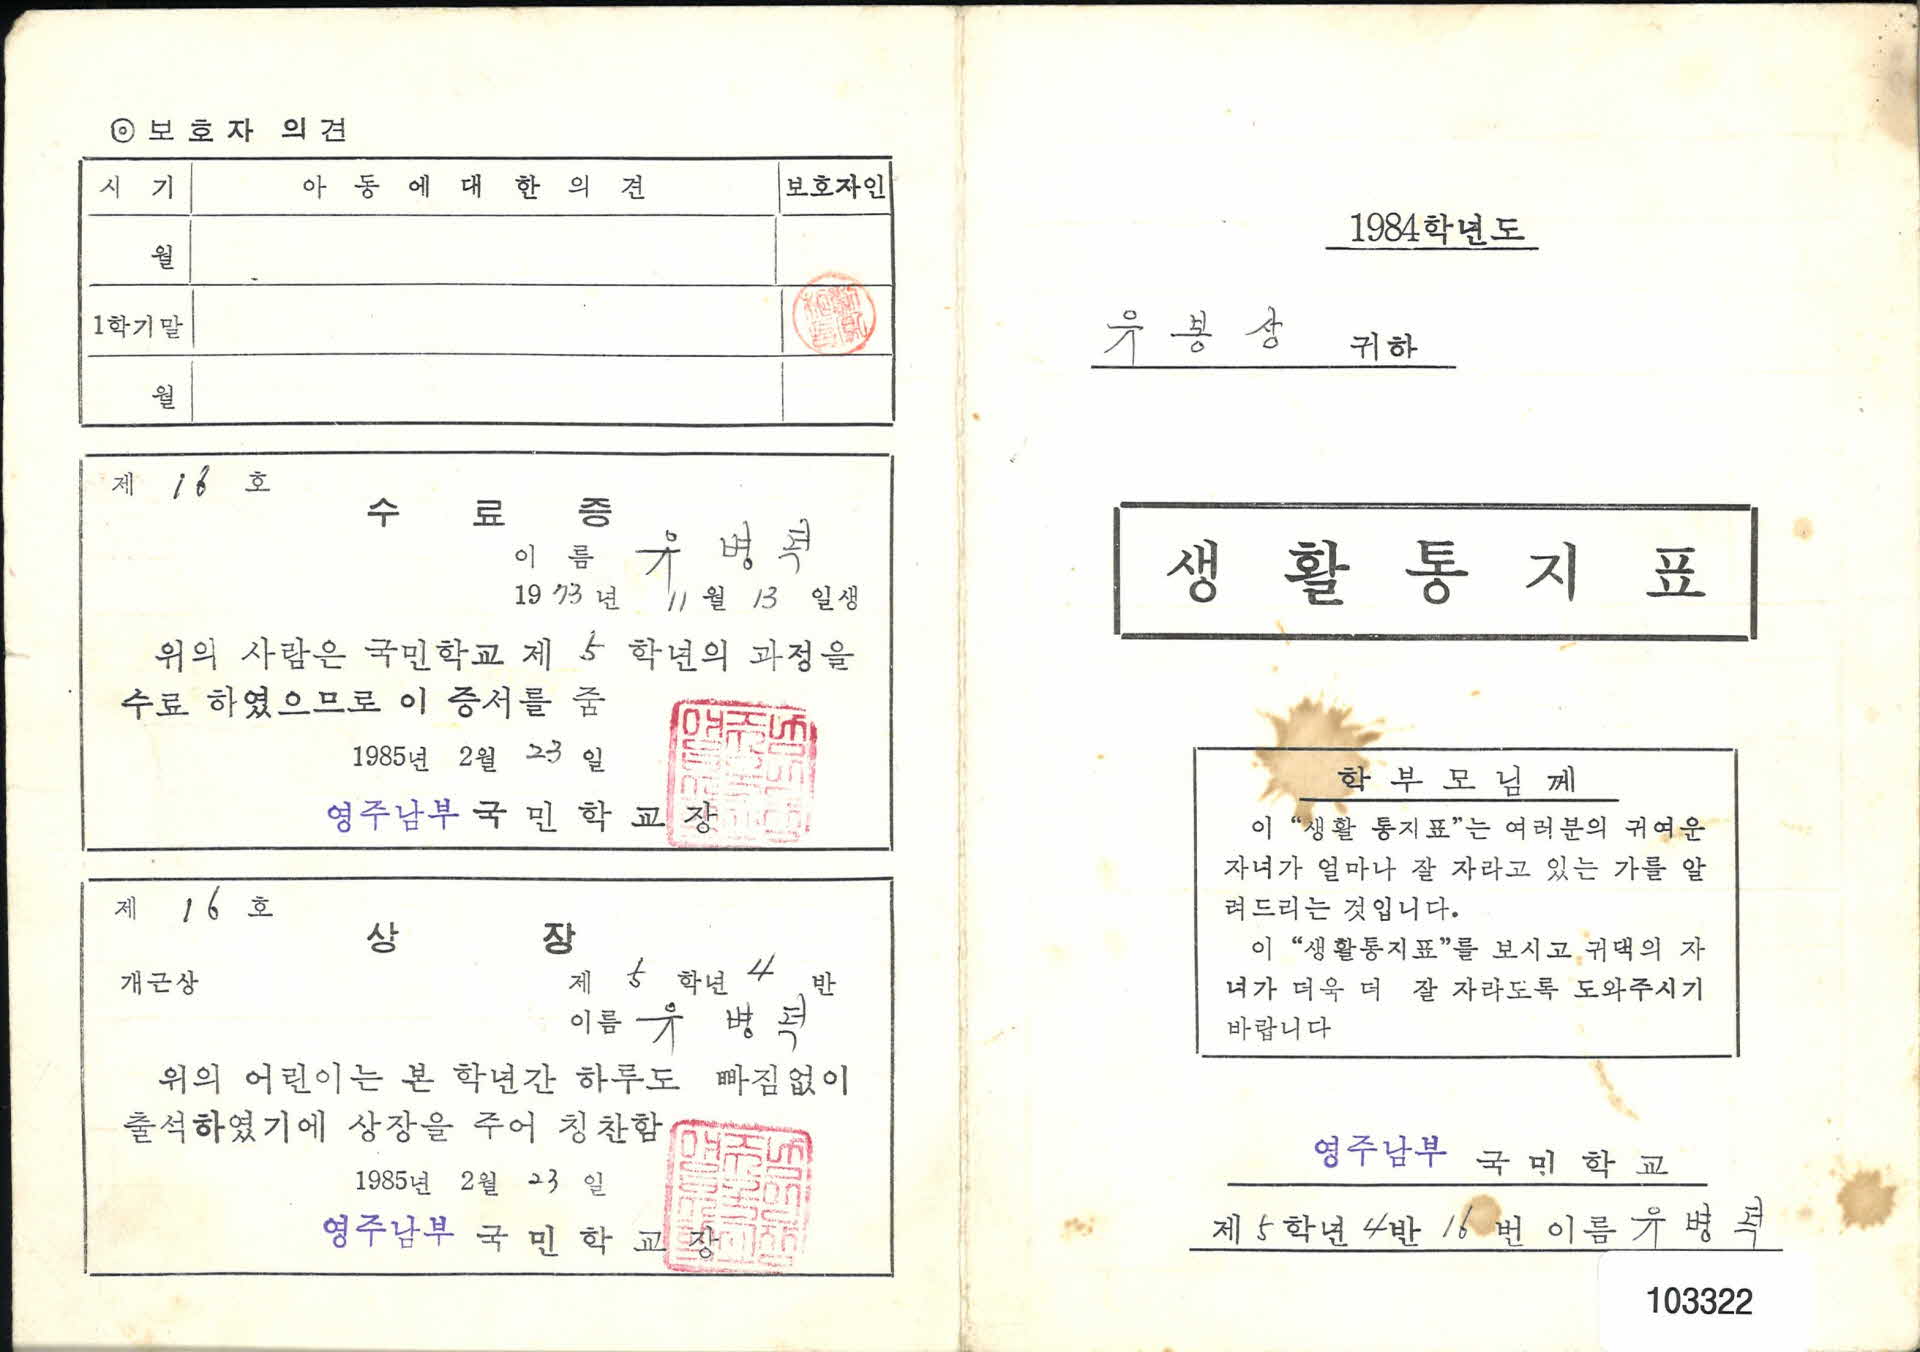 ⊙보호자 의견
시 기 아 동 에 대 한 의 견 보호자인
월
1학기말
월
제 16 호
수 료 증
이 름 우 병 력
1973년 11월 13 일생
위의 사람은 국민학교 제 5 학년의 과정을
수료 하였으므로 이 증서를 줌
1985년 2월 23 일
영주남부 국 민 학 교 장
제 16 호
상 장
개근상 제 5 학년 4 반
이름 우 병 력
위의 어린이는 본 학년간 하루도 빠짐없이
출석하였기에 상장을 주어 칭찬함
1985년 2월 23 일
영주남부 국 민 학 교 장
1984학년도
우 봉 상 귀하
생 활 통 지 표
학 부 모 님 께
이 “생활 통지표”는 여러분의 귀여운
자녀가 얼마나 잘 자라고 있는 가를 알
려드리는 것입니다.
이 “생활통지표”를 보시고 귀댁의 자
녀가 더욱 더 잘 자라도록 도와주시기
바랍니다
영주남부 국 민 학 교
제 5 학년 4 반 16 번 이름 우 병 력
103322